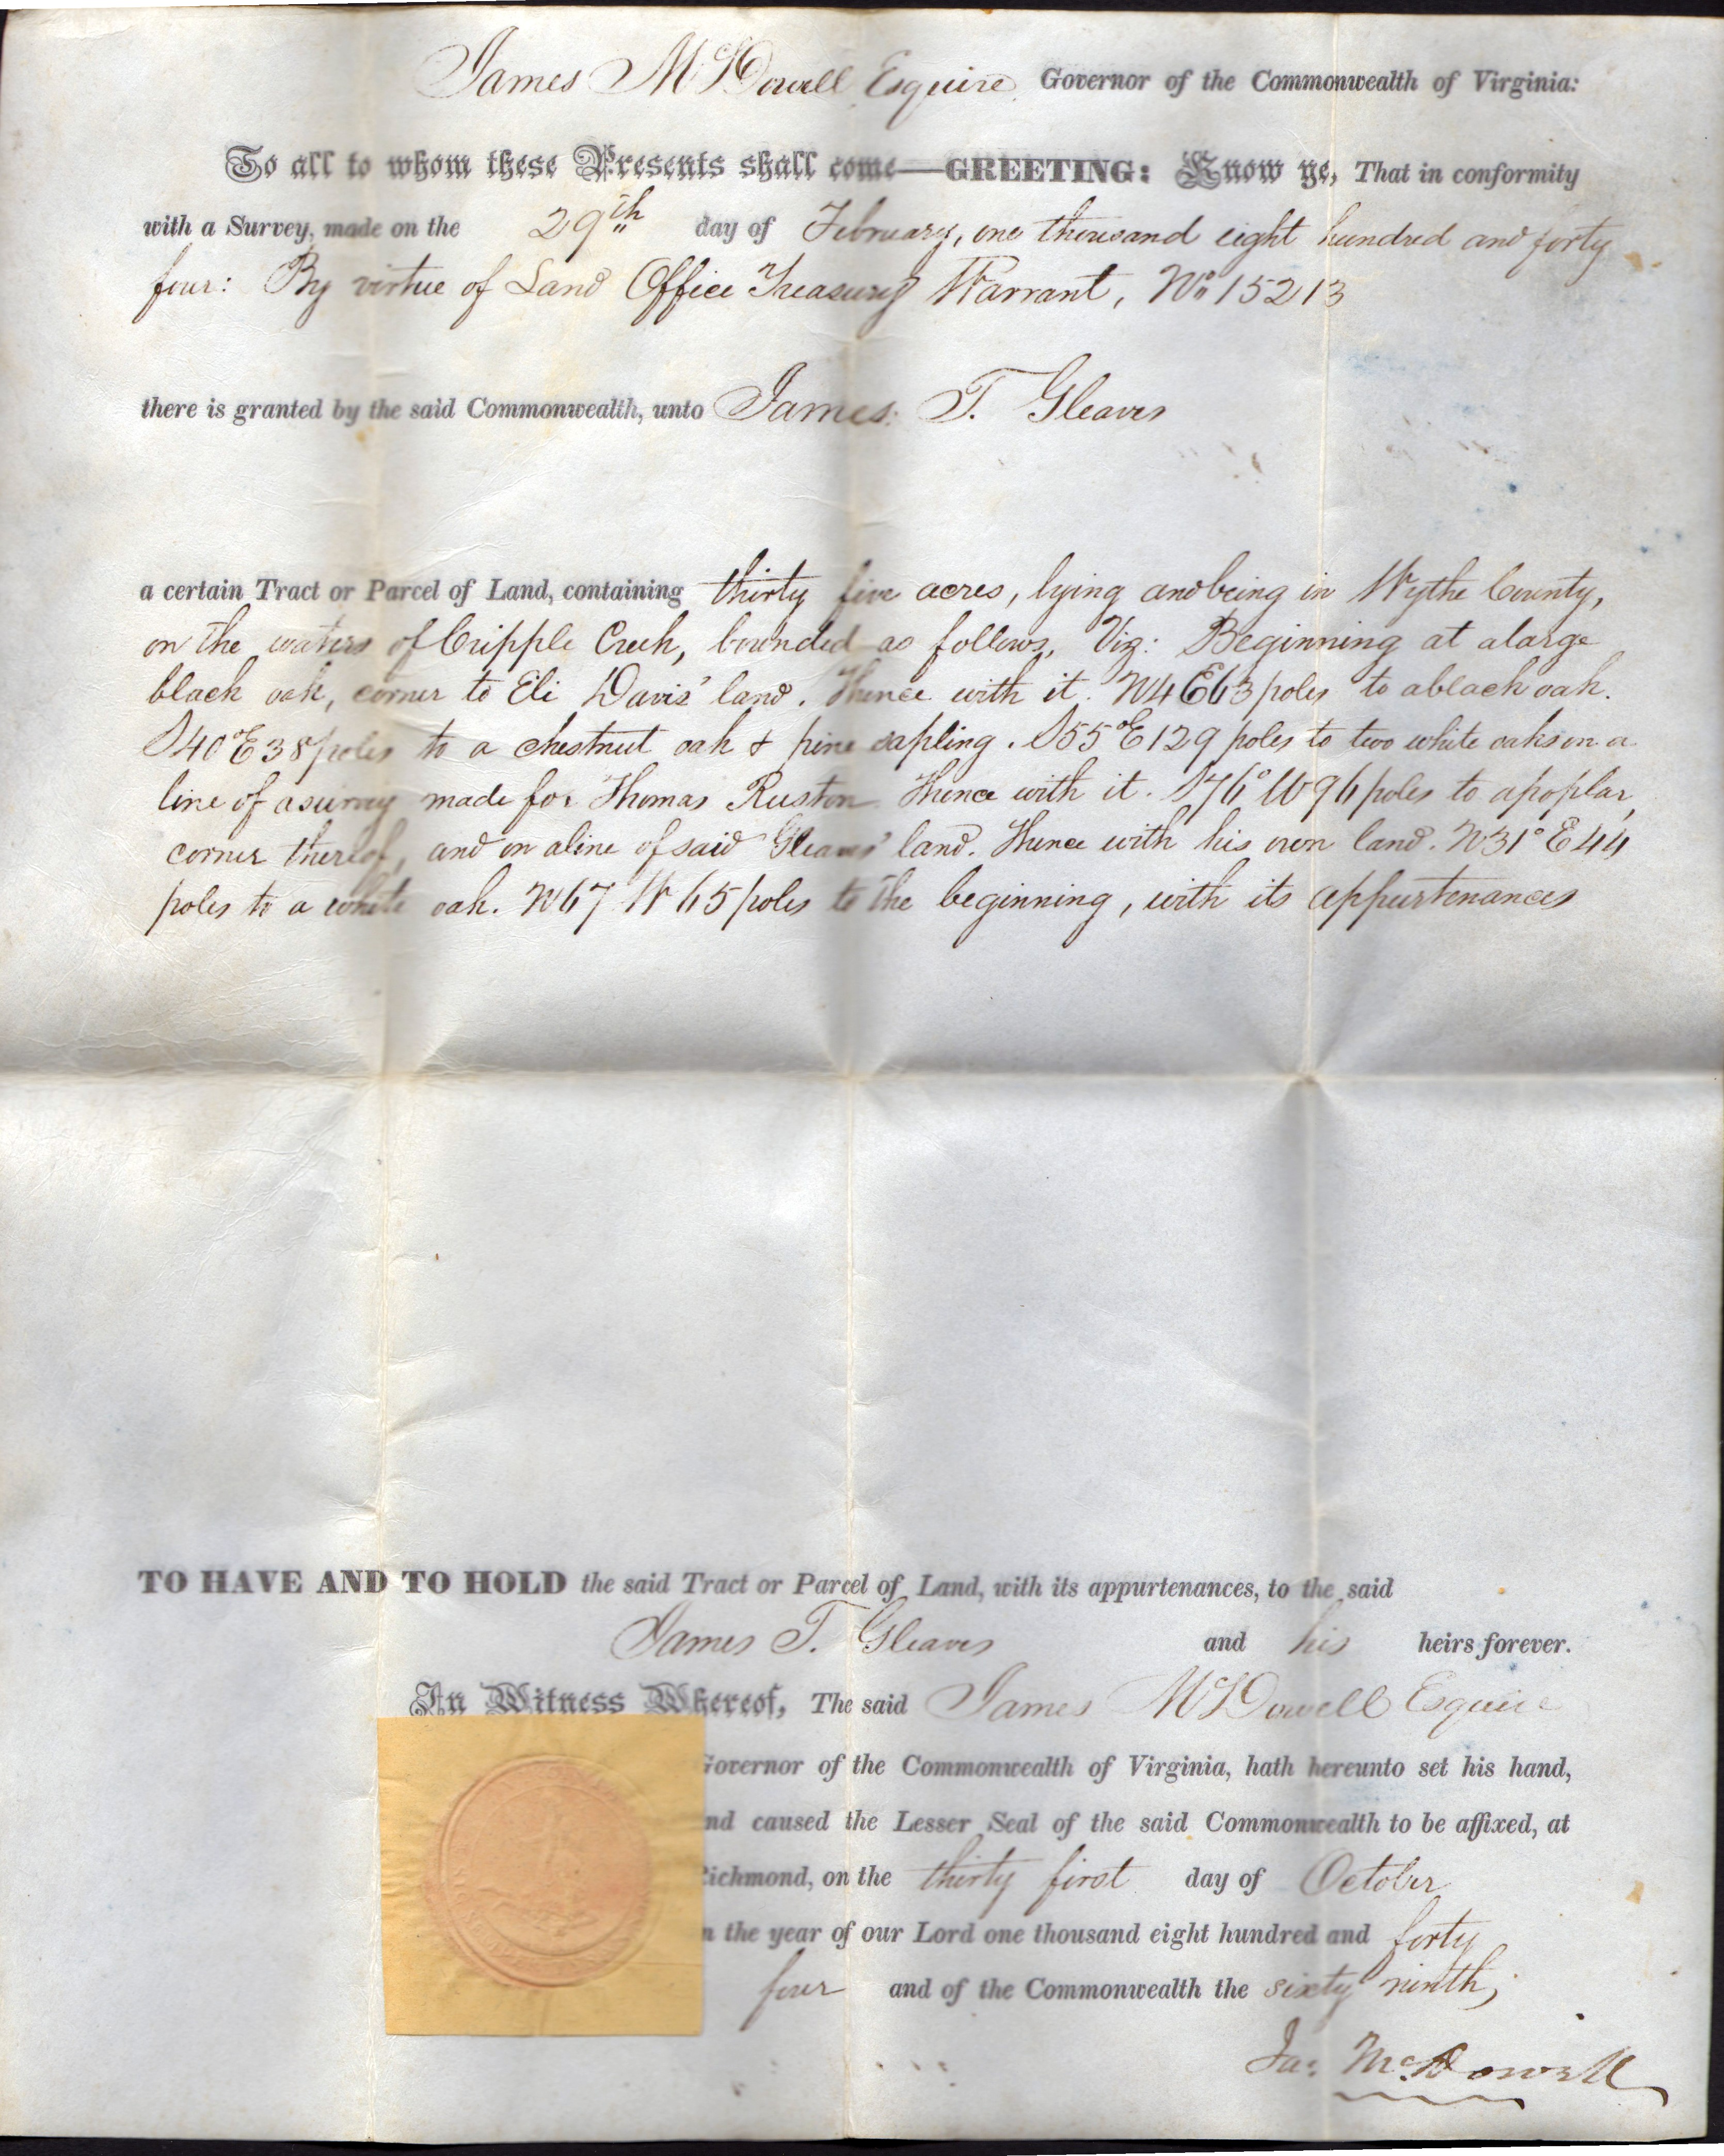 James McDowell Esquire Governor of the Commonwealth of Virginia:
To all to whom these Presents shall come—GREETING: Know ye, That in conformity
with a Survey, made on the 29th day of February, one thousand eight hundred and forty
four: By virtue of Land Office Treasury Warrant, No 15213
there is granted by the said Commonwealth, unto James T. Gleaves
a certain Tract or Parcel of Land, containing thirty five acres, lying and being in Wythe County,
on the waters of Cripple Creek, bounded as follows, Viz: Beginning at a large
black oak, corner to Eli Davis' land. Thence with it. N4 E63 poles to a black oak.
S40°E38 poles to a chestnut oak & pine sapling. S55°E129 poles to two white oaks on a
line of a survey made for Thomas Ruston Thence with it. S76°W96 poles to a poplar,
corner thereof, and on a line of said Gleaves' land. Thence with his own land. N31°E44
poles to a white oak. N67 W65 poles to the beginning, with its appurtenances
TO HAVE AND TO HOLD the said Tract or Parcel of Land, with its appurtenances, to the said
James T. Gleaves and his heirs forever.
In Witness Whereof, The said James McDowell Esquire
Governor of the Commonwealth of Virginia, hath hereunto set his hand,
nd caused the Lesser Seal of the said Commonwealth to be affixed, at
Richmond, on the thirty first day of October
n the year of our Lord one thousand eight hundred and forty
four and of the Commonwealth the sixty ninth;
Jas McDowell